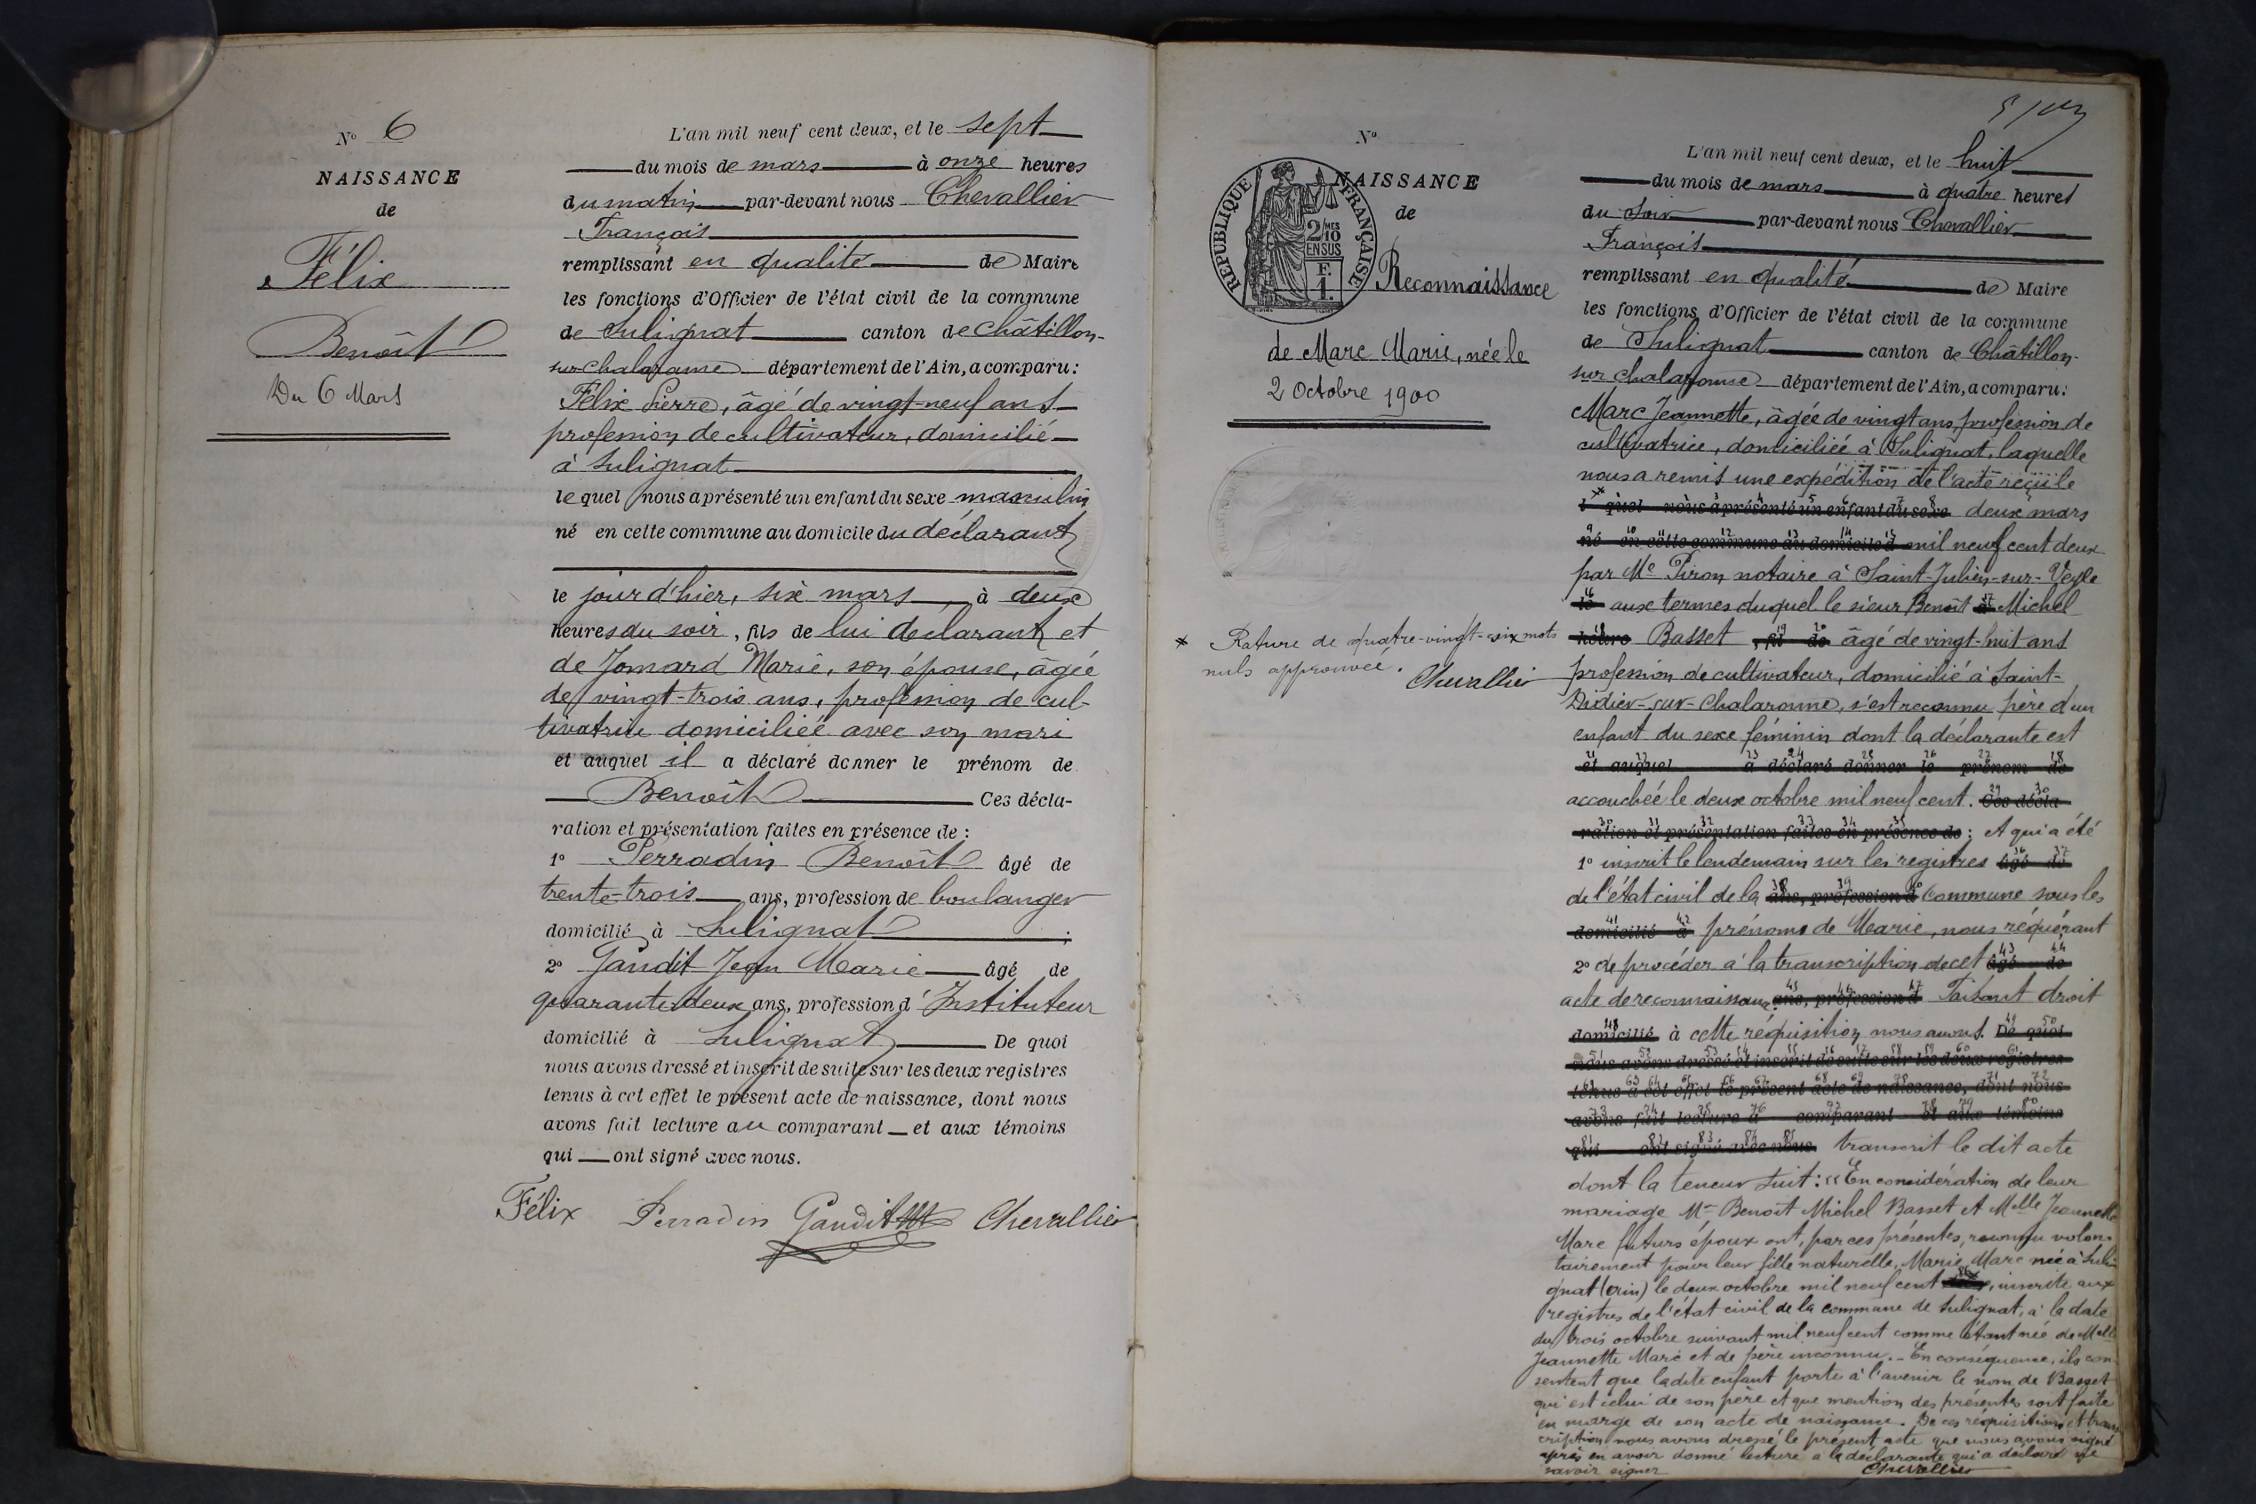 N° 6
NAISSANCE
de
Félix
Benoît
Du 6 Mars
L'an mil neuf cent deux, et le sept
du mois de mars à onze heures
du matin par-devant nous Chevallier
François
remplissant en qualité de Maire
les fonctions d'Officier de l'état civil de la commune
de Sulignat canton de Châtillon-
sur Chalaronne département de l'Ain, a comparu:
Félix Pierre, âgé de vingt-neuf ans
profession de cultivateur, domicilié
à Sulignat
lequel nous a présenté un enfant du sexe masculin
né en cette commune au domicile du déclarant
le jour d'hier, six mars à deux
heures du soir, fils de lui déclarant et
de Jomard Marie, son épouse, âgée
de vingt-trois ans, profession de cul-
tivatrice domiciliée avec son mari
et auquel il a déclaré donner le prénom de
Benoît Ces décla-
ration et présentation faites en présence de :
1° Perradin Benoît âgé de
trente-trois ans, profession de boulanger
domicilié à Sulignat ;
2° Gandit Jean Marie âgé de
quarante-deux ans, profession d'Instituteur
domicilié à Sulignat De quoi
nous avons dressé et inscrit de suite sur les deux registres
tenus à cet effet le présent acte de naissance, dont nous
avons fait lecture au comparant et aux témoins
qui ont signé avec nous.
Félix Perradin Gandit Chevallier
N°
NAISSANCE
de
REPUBLIQUE FRANÇAISE
2/10 MES
EN SUS
F.
1.
Reconnaissance
de Marc Marie, née le
2 Octobre 1900
* Rature de quatre-vingt-six mots
nuls approuvée. Chevallier
L'an mil neuf cent deux, et le huit
du mois de mars à quatre heures
du soir par-devant nous Chevallier
François
remplissant en qualité de Maire
les fonctions d'Officier de l'état civil de la commune
de Sulignat canton de Châtillon-
sur Chalaronne département de l'Ain, a comparu:
Marc Jeannette, âgée de vingt ans, profession de
cultivatrice, domiciliée à Sulignat, laquelle
nous a remis une expédition de l'acte reçu le
quel nous a présenté un enfant du sexe deux mars
né en cette commune au domicile d mil neuf cent deux
par Me Piron notaire à Saint-Julien-sur-Veyle
le aux termes duquel le sieur Benoît à Michel
heure Basset , fil de âgé de vingt-huit ans
profession de cultivateur, domicilié à Saint-
Didier-sur-Chalaronne, s'est reconnu père d'un
enfant du sexe féminin dont la déclarante est
et auquel a déclaré donner le prénom de
accouchée le deux octobre mil neuf cent. Ces décla-
ration et présentation faites en présence de : et qui a été
1° inscrit le lendemain sur les registres âgé de
de l'état civil de la ans, profession d commune sous les
domicilié à prénoms de Marie, nous réquérant
2° de procéder à la transcription de cet âgé de
acte de reconnaissance. ans, profession d Faisant droit
domicilié à cette réquisition nous avons. De quoi
nous avons dressé et inscrit de suite sur les deux registres
tenus à cet effet le présent acte de naissance, dont nous
avons fait lecture à comparant et aux témoins
qui ont signé avec nous. transcrit le dit acte
dont la teneur suit : « En considération de leur
mariage Mr Benoît Michel Basset et Melle Jeannette
Marc futurs époux ont, par ces présentes, reconnu volon-
tairement pour leur fille naturelle, Marie Marc née à Suli-
gnat (Ain) le deux octobre mil neuf cent , inscrite aux
registres de l'état civil de la commune de Sulignat, à la date
du trois octobre suivant mil neuf cent comme étant née de Melle
Jeannette Marc et de père inconnu. - En conséquence, ils con-
sentent que ladite enfant porte à l'avenir le nom de Basset
qui est celui de son père et que mention des présentes soit faite
en marge de son acte de naissance. De ces réquisitions et trans-
cription nous avons dressé le présent acte que nous avons signé
après en avoir donné lecture à la déclarante qui a déclaré ne
savoir signer Chevallier